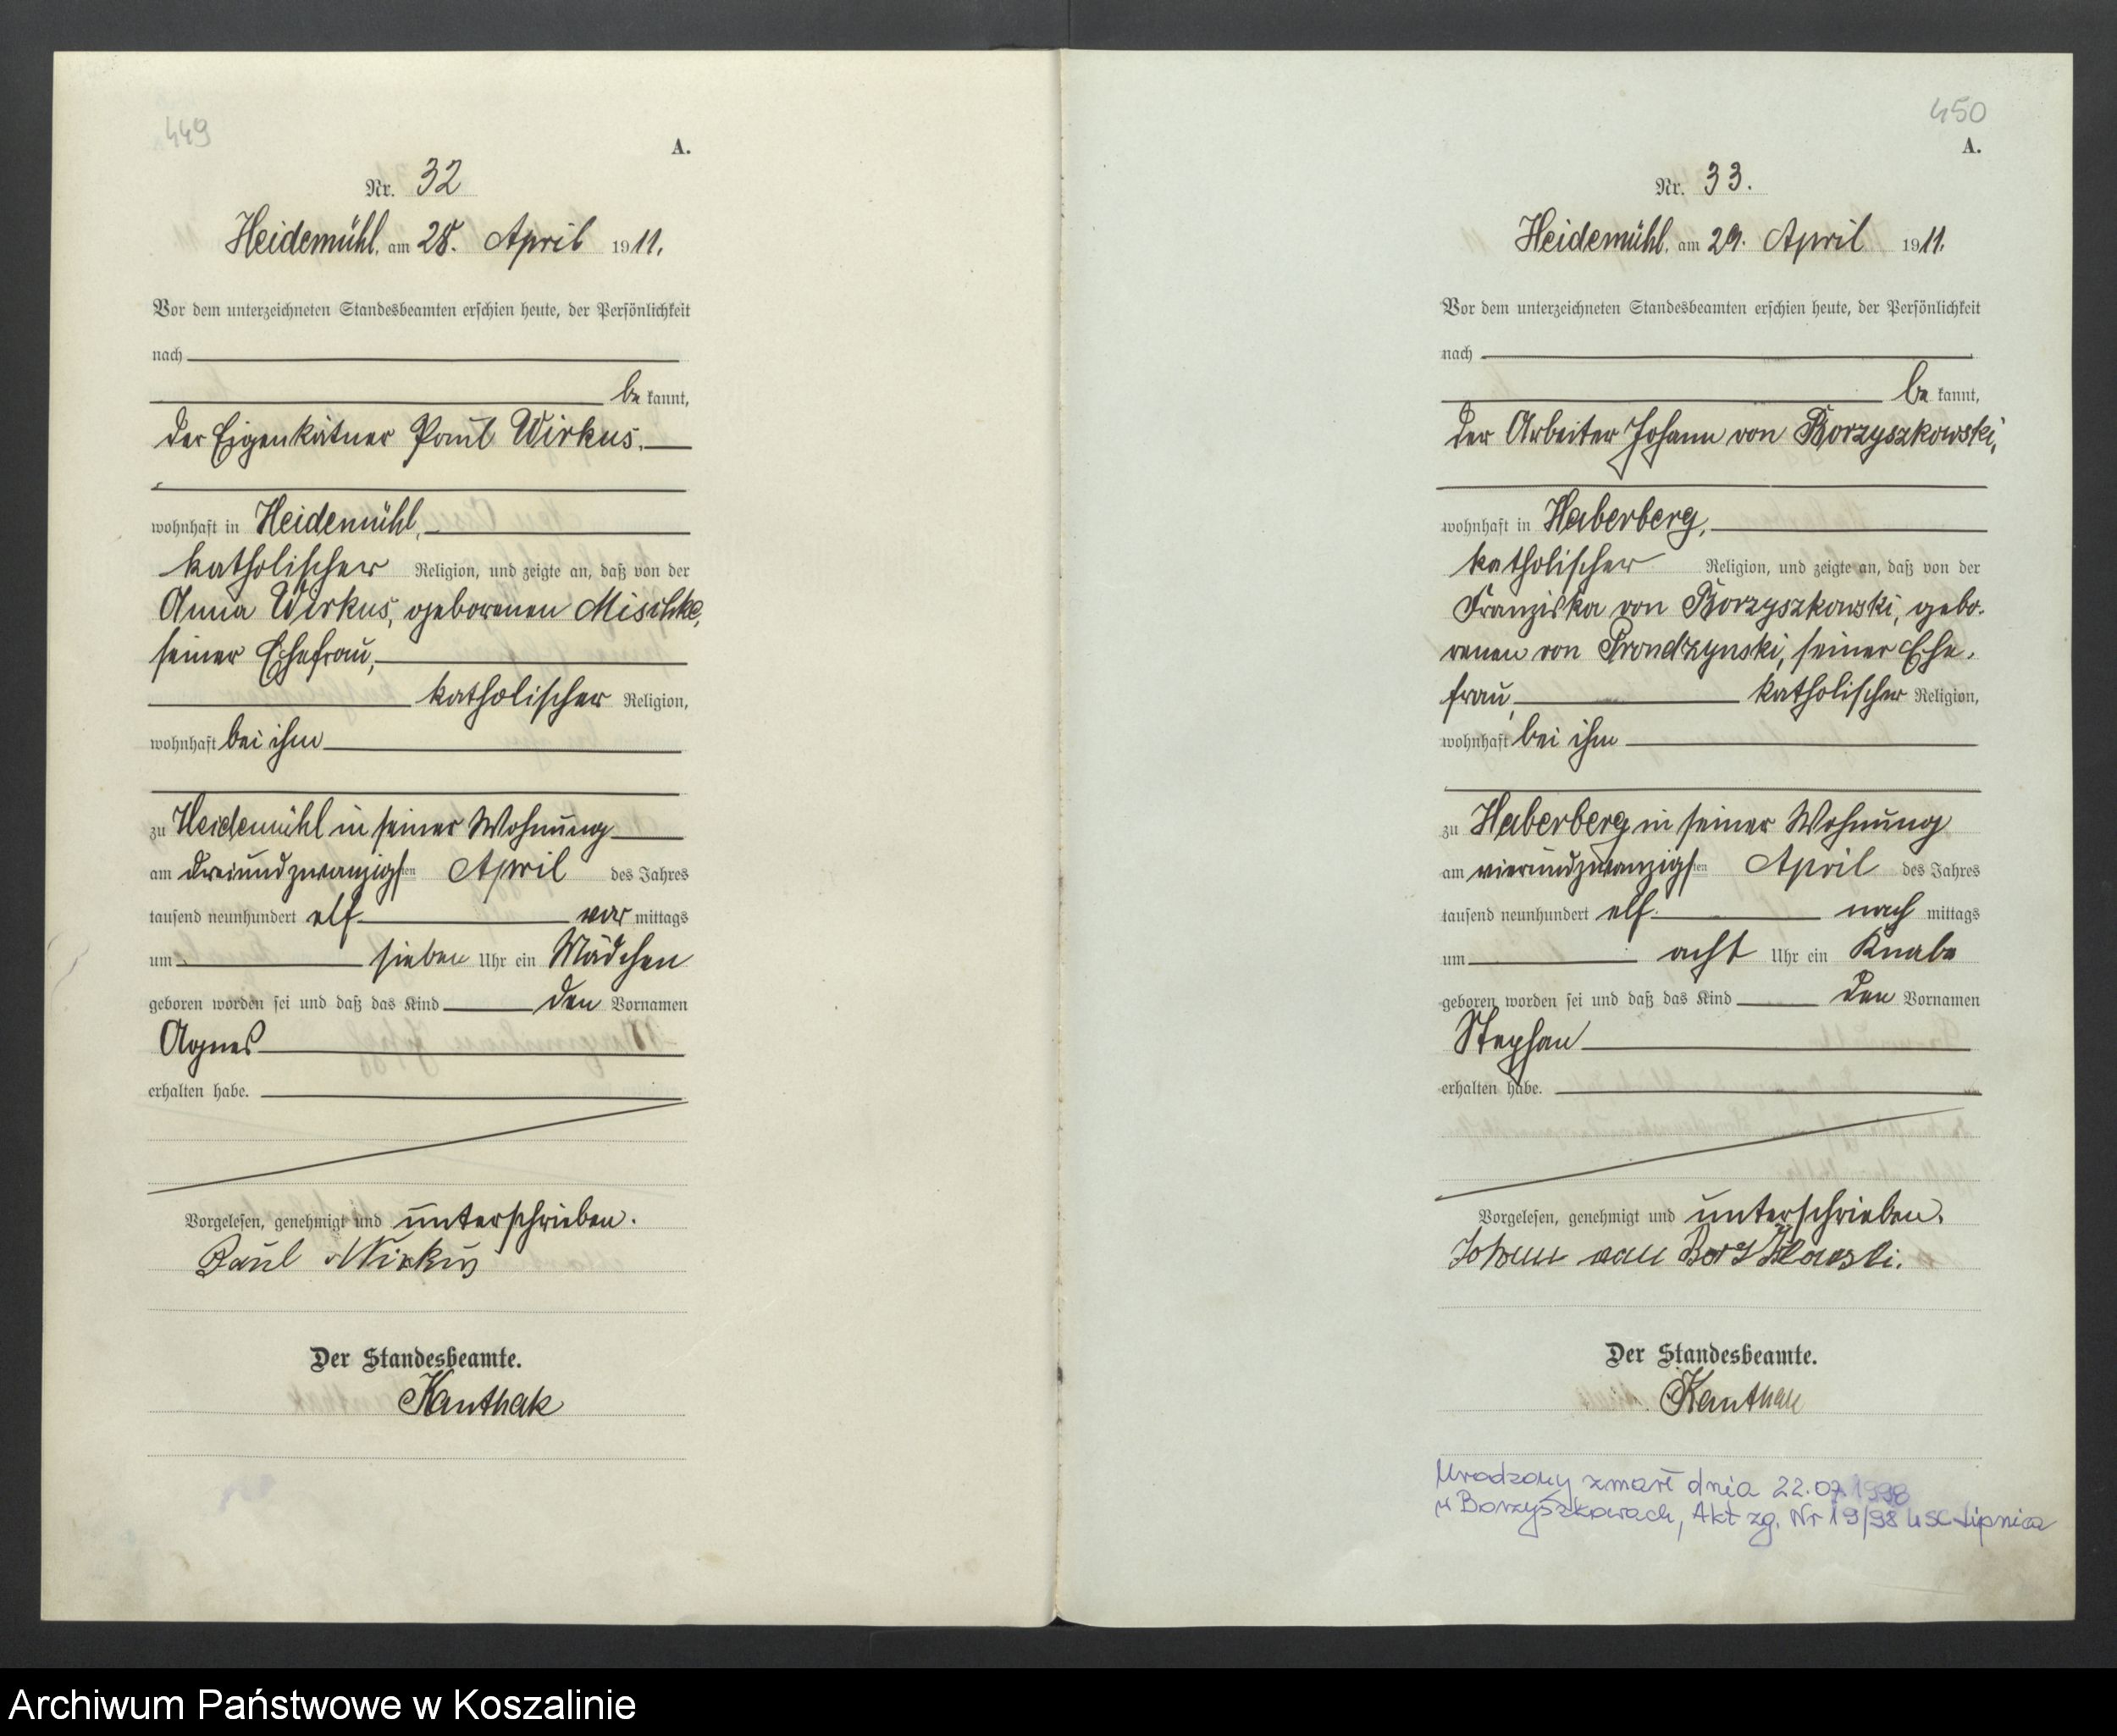 449
A.
Nr. 32
Heidemühl, am 28. April 1911.
Vor dem unterzeichneten Standesbeamten erschien heute, der Persönlichkeit
nach
be kannt,
der Eigenkätner Paul Wirkus.
wohnhaft in Heidemühl,
katholischer Religion, und zeigte an, daß von der
Anna Wirkus, geborenen Mischke,
seiner Ehefrau,
katholischer Religion,
wohnhaft bei ihm
zu Heidemühl in seiner Wohnung
am dreiundzwanzigsten April des Jahres
tausend neunhundert elf vor mittags
um sieben Uhr ein Mädchen
geboren worden sei und daß das Kind den Vornamen
Agnes
erhalten habe.
Vorgelesen, genehmigt und unterschrieben.
Paul Wirkus
Der Standesbeamte.
Kanthak
450
A.
Nr. 33.
Heidemühl, am 29. April 1911.
Vor dem unterzeichneten Standesbeamten erschien heute, der Persönlichkeit
nach
be kannt,
der Arbeiter Johann von Borzyszkowski,
wohnhaft in Haberberg,
katholischer Religion, und zeigte an, daß von der
Franziska von Borzyszkowski, gebo-
renen von Prondzynski, seiner Ehe-
frau, katholischer Religion,
wohnhaft bei ihm
zu Haberberg in seiner Wohnung
am vierundzwanzigsten April des Jahres
tausend neunhundert elf nach mittags
um acht Uhr ein Knabe
geboren worden sei und daß das Kind den Vornamen
Stephan
erhalten habe.
Vorgelesen, genehmigt und unterschrieben.
Johann von
Der Standesbeamte.
Kanthak
Urodzony zmarł dnia 22.07.1998
w Borzyszkowach, Akt zg. Nr 19/98 USC Lipnica
Archiwum Państwowe w Koszalinie